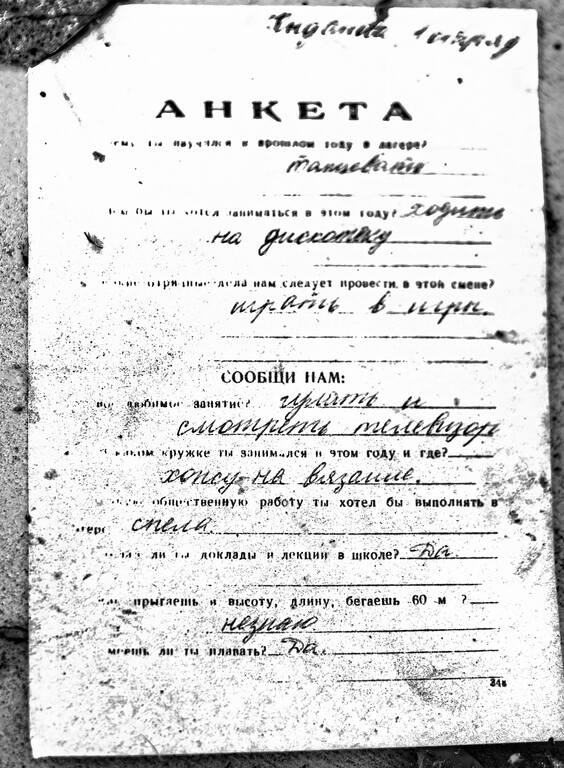 1 отряд
АНКЕТА
ты научился в прошлом году в лагере?
танцевать
бы ты хотел заниматься в этом году? ходить
на дискотеку
отрядные дела нам следует провести в этой смене?
играть в игры.
СООБЩИ НАМ:
любимое занятие? гулять и
смотреть телевизор
каком кружке ты занимался в этом году и где?
хожу на вязание.
общественную работу ты хотел бы выполнять в
лагере спела
ли ты доклады и лекции в школе? Да.
прыгаешь в высоту, длину, бегаешь 60 м ?
незнаю
умеешь ли ты плавать? Да.